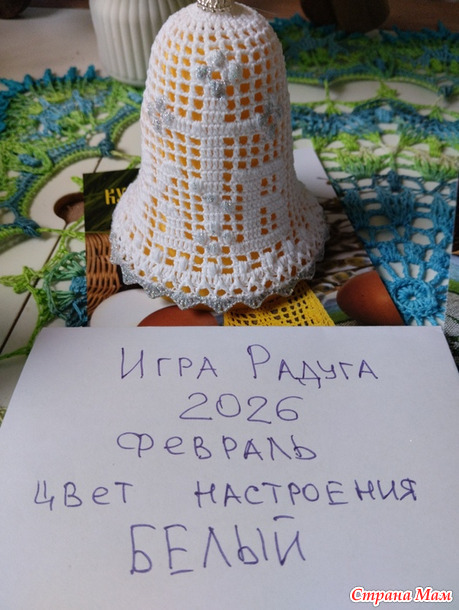 ИГРА РАДУГА
2026
ФЕВРАЛЬ
ЦВЕТ НАСТРОЕНИЯ
БЕЛЫЙ
Страна Мам